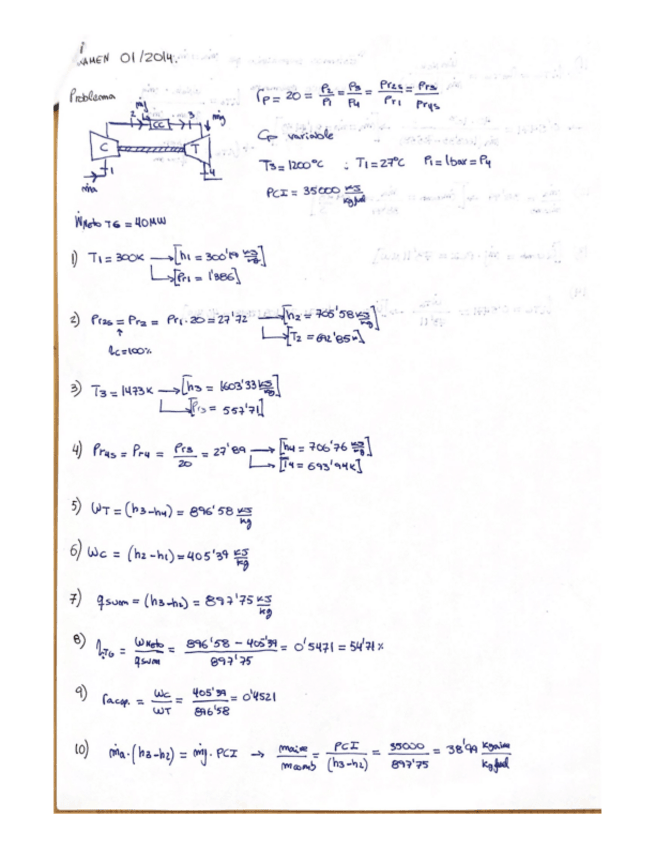 AMEN 01/2014.
Problema
rp = 20 = P2/P1 = P3/P4 = Pr2s/Pr1 = Pr3/Pr4s
ṁf
2 CC 3 ṁg
C T
1 4
ṁa
Cp variable
T3 = 1200°C ; T1 = 27°C P1 = 1bar = P4
PCI = 35000 KJ/kgfuel
Ẇneto TG = 40MW
1) T1 = 300K → [h1 = 300'19 KJ/kg]
→ [Pr1 = 1'386]
2) Pr2s = Pr2 = Pr1 · 20 = 27'72 → [h2 = 705'58 KJ/kg]
→ [T2 = 692'85K]
ηc = 100%
3) T3 = 1473K → [h3 = 1603'33 KJ/kg]
→ [Pr3 = 557'71]
4) Pr4s = Pr4 = Pr3/20 = 27'89 → [h4 = 706'76 KJ/kg]
→ [T4 = 693'94K]
5) WT = (h3-h4) = 896'58 KJ/kg
6) Wc = (h2-h1) = 405'39 KJ/kg
7) qsum = (h3-h2) = 897'75 KJ/kg
8) ηTG = Wneto/qsum = 896'58 - 405'39/897'75 = 0'5471 = 54'71%
9) racop. = Wc/WT = 405'39/896'58 = 0'4521
10) ṁa · (h3-h2) = ṁf · PCI → maire/mcomb = PCI/(h3-h2) = 35000/897'75 = 38'99 kgaire/kgfuel